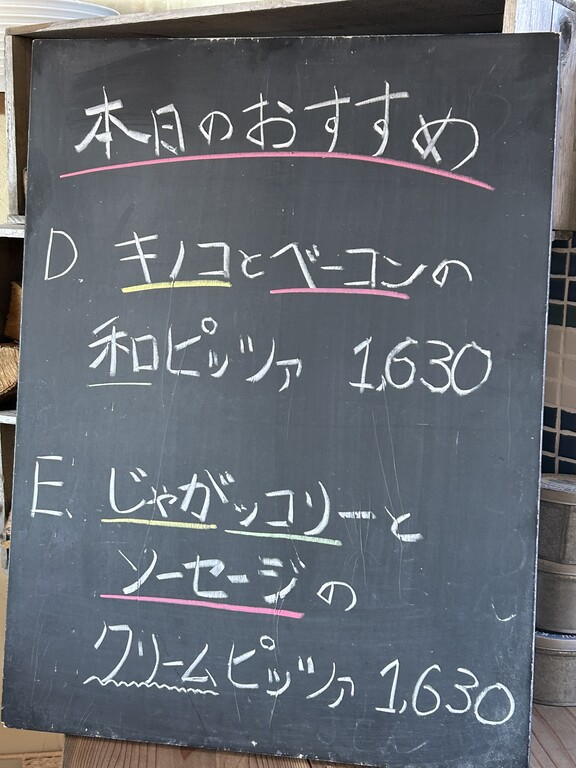 本日のおすすめ
D. キノコとベーコンの
和ピッツァ 1,630
E. じゃがッコリーと
ソーセージの
クリームピッツァ 1,630